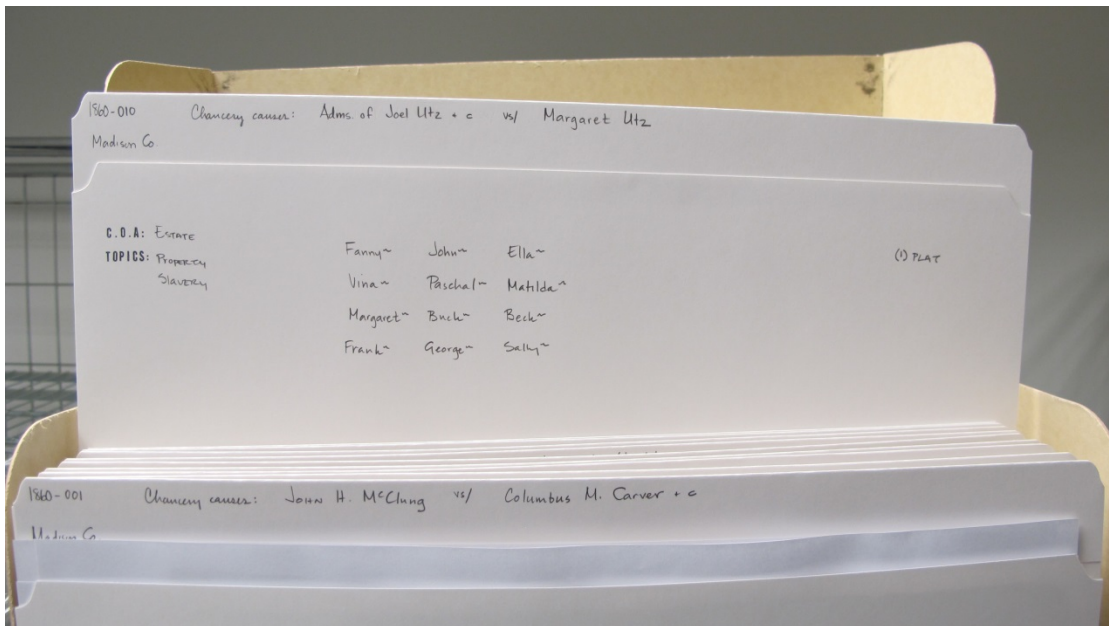 1860-010 Chancery causes: Adms. of Joel Utz + c vs/ Margaret Utz
Madison Co.
C.O.A: ESTATE
TOPICS: PROPERTY
SLAVERY
Fanny~ John~ Ella~
Vina~ Paschal~ Matilda~
Margaret~ Buck~ Beck~
Frank~ George~ Sally~
(1) PLAT
1860-001 Chancery causes: JOHN H. McClung vs/ Columbus M. Carver + c
Madison Co.